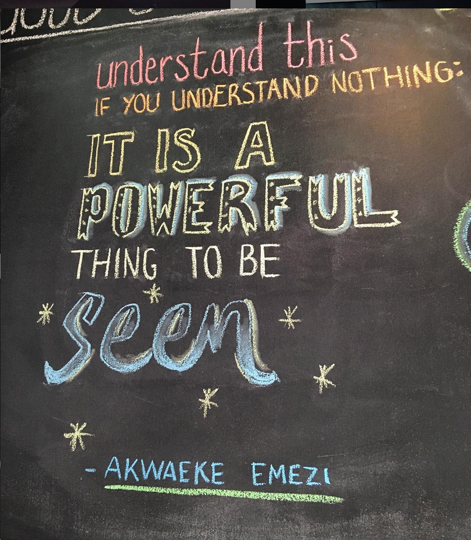 understand this
IF YOU UNDERSTAND NOTHING:
IT IS A
POWERFUL
THING TO BE
seen
- AKWAEKE EMEZI